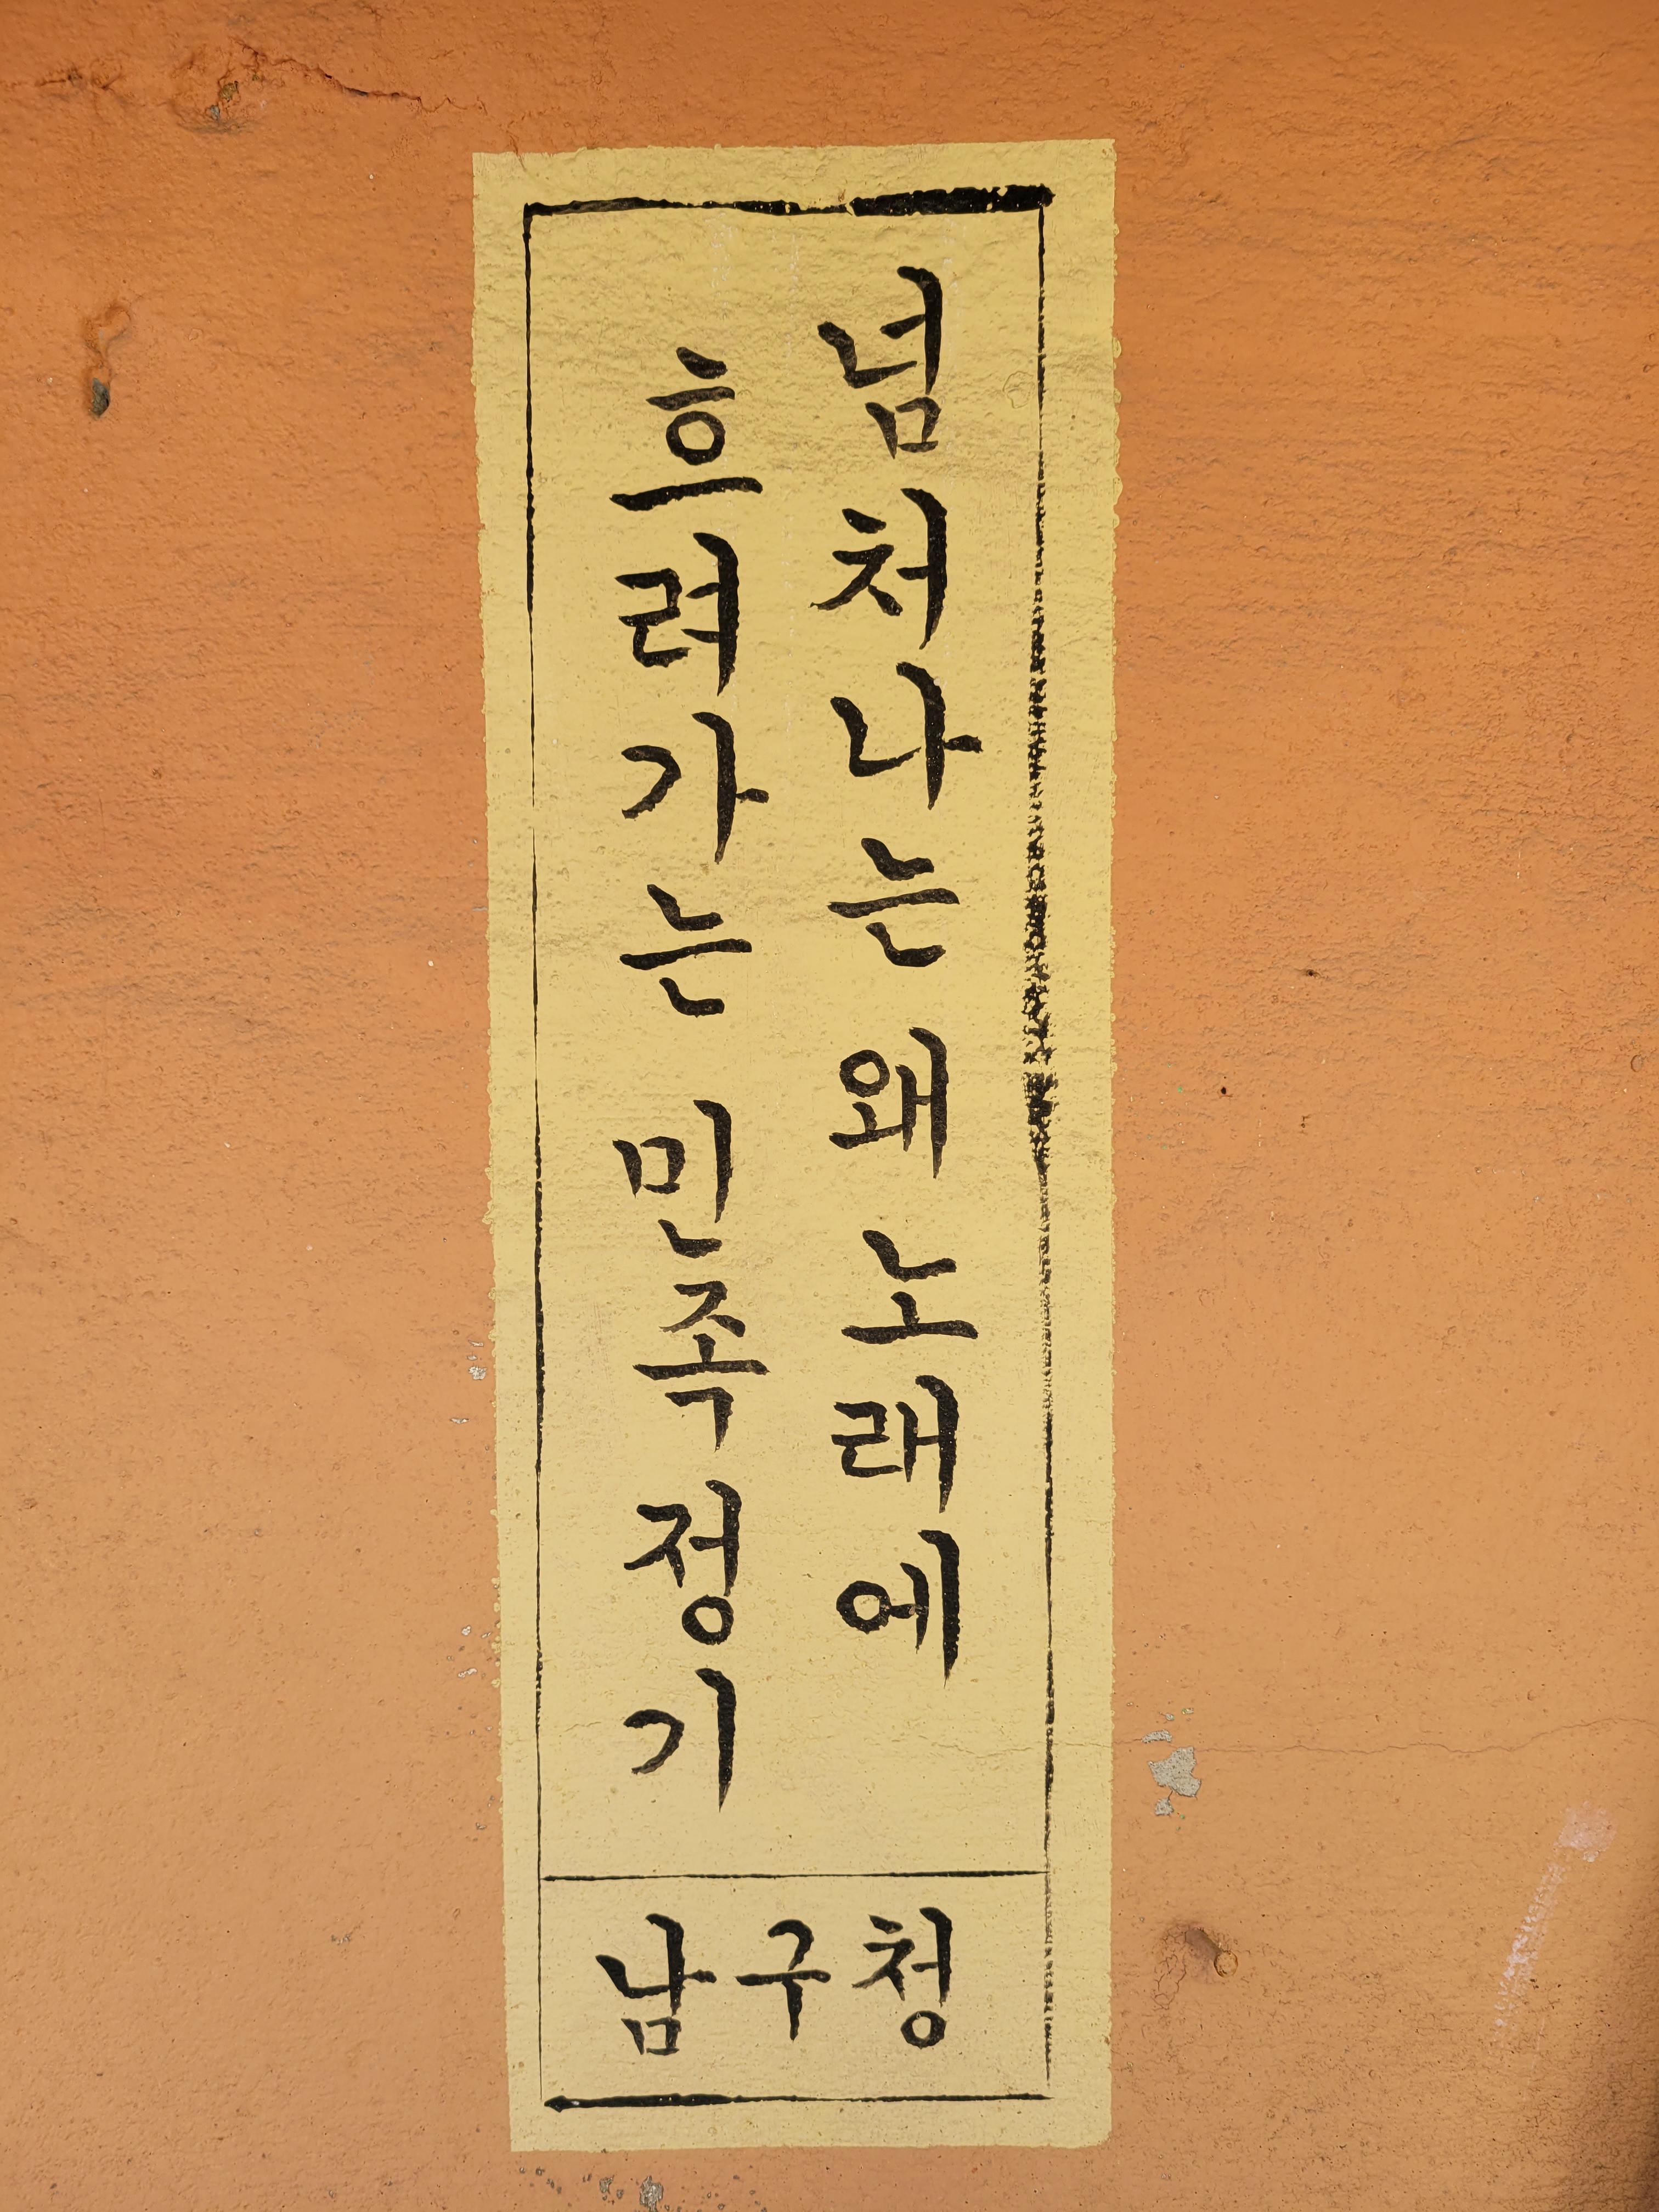 넘처나는 왜 노래에
흐려가는 민족정기
남구청